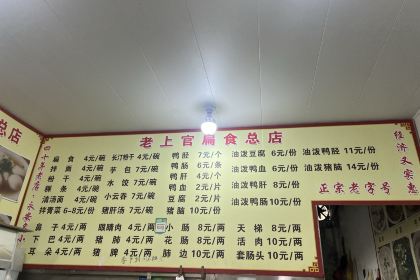 老上官扁食总店
总店
四十年老店
经济又实惠
正宗老字号
扁食 4元/碗 长汀粉干 4元/碗 鸭胫 7元/个 油泼豆腐 6元/份 油泼鸭胫 11元/份
拌面 4元/碗 芋包 7元/碗 鸭肠 6元/条 油泼鸭血 6元/份 油泼猪脑 14元/份
粉干 4元/碗 水饺 7元/碗 鸭肝 4元/个 油泼鸭肝 8元/份
粿条 4元/碗 小云吞 7元/碗 鸭血 2元/片 油泼鸭肠 10元/份
清汤面 4元/碗 豆腐 2元/片
拌青菜 6元/份 猪肝汤 7元/碗 猪脑 10元/份
鼻子 4元/两 跟睛肉 4元/两 小肠 8元/两 天梯 8元/两
下巴 4元/两 猪肺 4元/两 花肠 8元/两 活肉 10元/两
耳朵 4元/两 猪脾 4元/两 肋边 10元/两 套肠头 10元/两